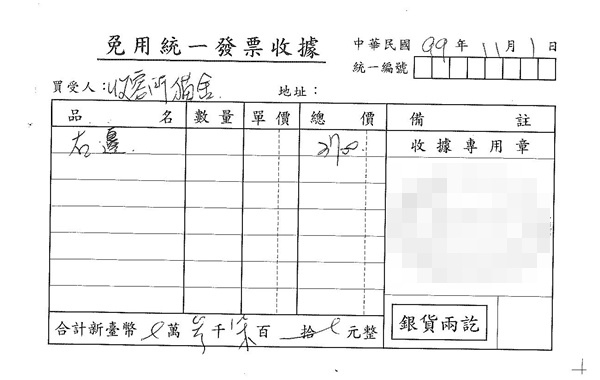 免用統一發票收據
中華民國 99 年 11 月 1 日
統一編號
買受人： 地址：
品名 數量 單價 總價 備註
右邊 2700 收據專用章
合計新臺幣 萬 千 百 拾 元整
銀貨兩訖